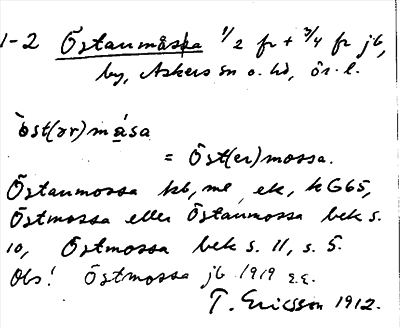 1-2 Östanmåssa 1/2 fr + 3/4 fr jb,
by, Askers sn o. hd, ör. l.
`öst(ər)måsa
= Öst(er)mossa.
Östanmossa kb, ml, ek, k G65,
Östmossa eller Östanmossa bek s.
10, Östmossa bek s. 11, s. 5.
Obs! Östmossa jb 1919 E.E.
T. Ericsson 1912.